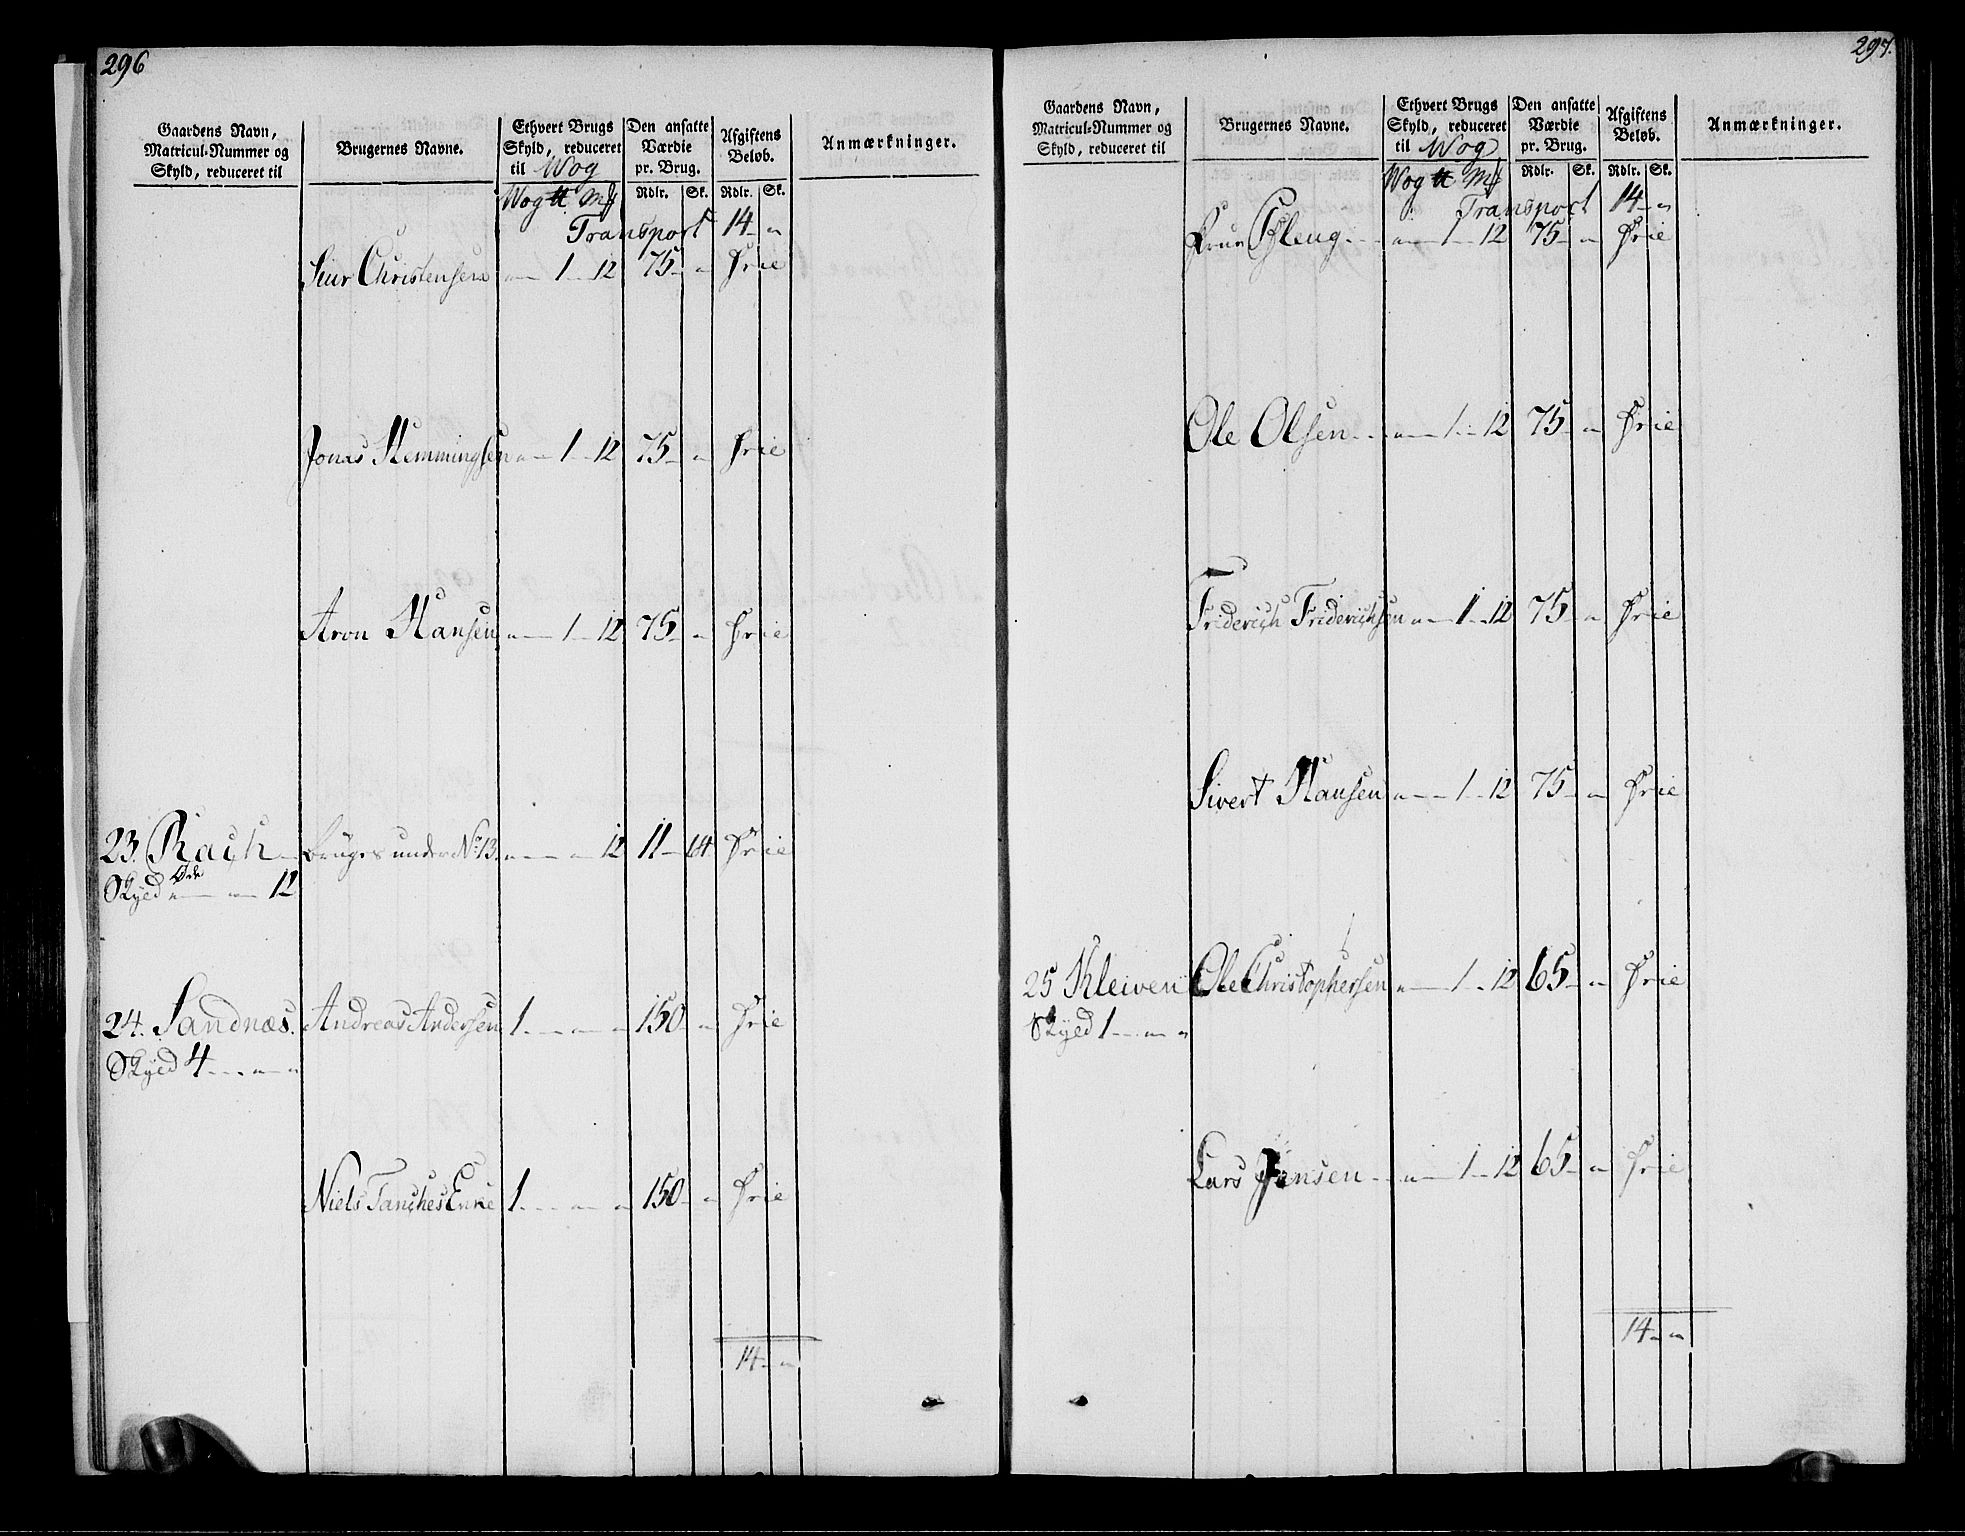 296
Gaardens Navn,
Matricul-Nummer og
Skyld, reduceret til
Brugernes Navne.
Ethvert Brugs
Skyld, reduceret
til Wog
Den ansatte
Værdie
pr. Brug.
Afgiftens
Beløb.
Anmærkninger.
Wog ℔ M
Rdlr. Sk. Rdlr. Sk.
Transport 14 - "
Siur Christensen " - 1 - 12 75 - " Frie
Jonas Hemmingsen " - 1 - 12 75 - " Frie
Aron Hansen " - 1 - 12 75 - " Frie
23. Rach bruges under No 13. " - " - 12 11 - 14 Frie
Øde
Skyld " - " - 12
24. Sandnæs. Andreas Andersen 1 - " - " 150 - " Frie
Skyld 4 - " - "
Niels Tanches Enke 1 - " - " 150 - " Frie
14 - "
297.
Gaardens Navn,
Matricul-Nummer og
Skyld, reduceret til
Brugernes Navne.
Ethvert Brugs
Skyld, reduceret
til Wog
Den ansatte
Værdie
pr. Brug.
Afgiftens
Beløb.
Anmærkninger.
Wog ℔ M
Rdlr. Sk. Rdlr. Sk.
Transport 14 - "
" - 1 - 12 75 - " Frie
Ole Olsen " - 1 - 12 75 - " Frie
Friderich Friderichsen " - 1 - 12 75 - " Frie
Sivert Hansen " - 1 - 12 75 - " Frie
25 Kleiven Ole Christophersen " - 1 - 12 65 - " Frie
Skyld 1 - " - "
Lars Jensen " - 1 - 12 65 - " Frie
14 - "